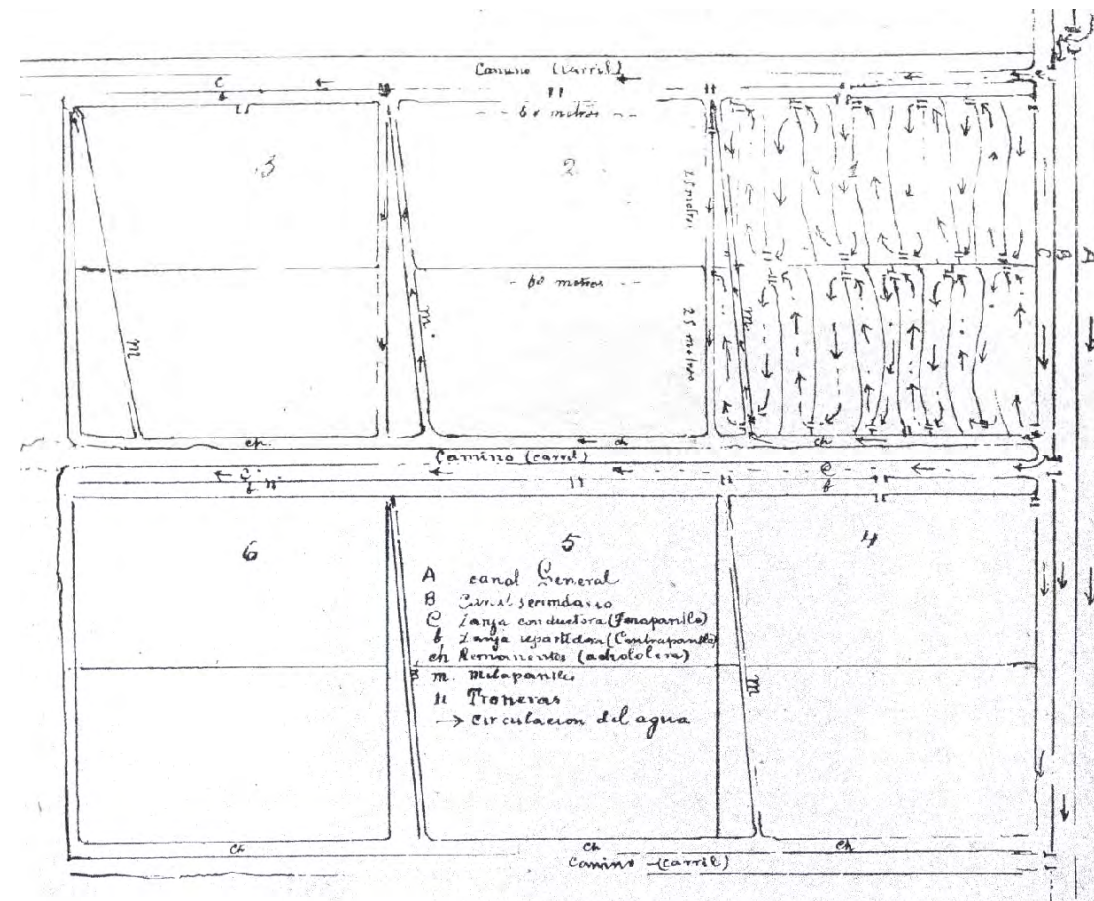 Camino (carril)
C
C
b
- 60 metros - -
3
2
1
25 metros
C
B
A
- 60 metros - -
m
m
m
25 metros
ch
ch
ch
Camino (carril)
C
C
b
b
6
5
4
A canal General
B Canal secundario
C Zanja conductora
b Zanja repartidora
ch Remanentes (achololera)
m. Milapantles
n Troneras
→ circulacion del agua
m
m
ch
ch
ch
Camino (carril)